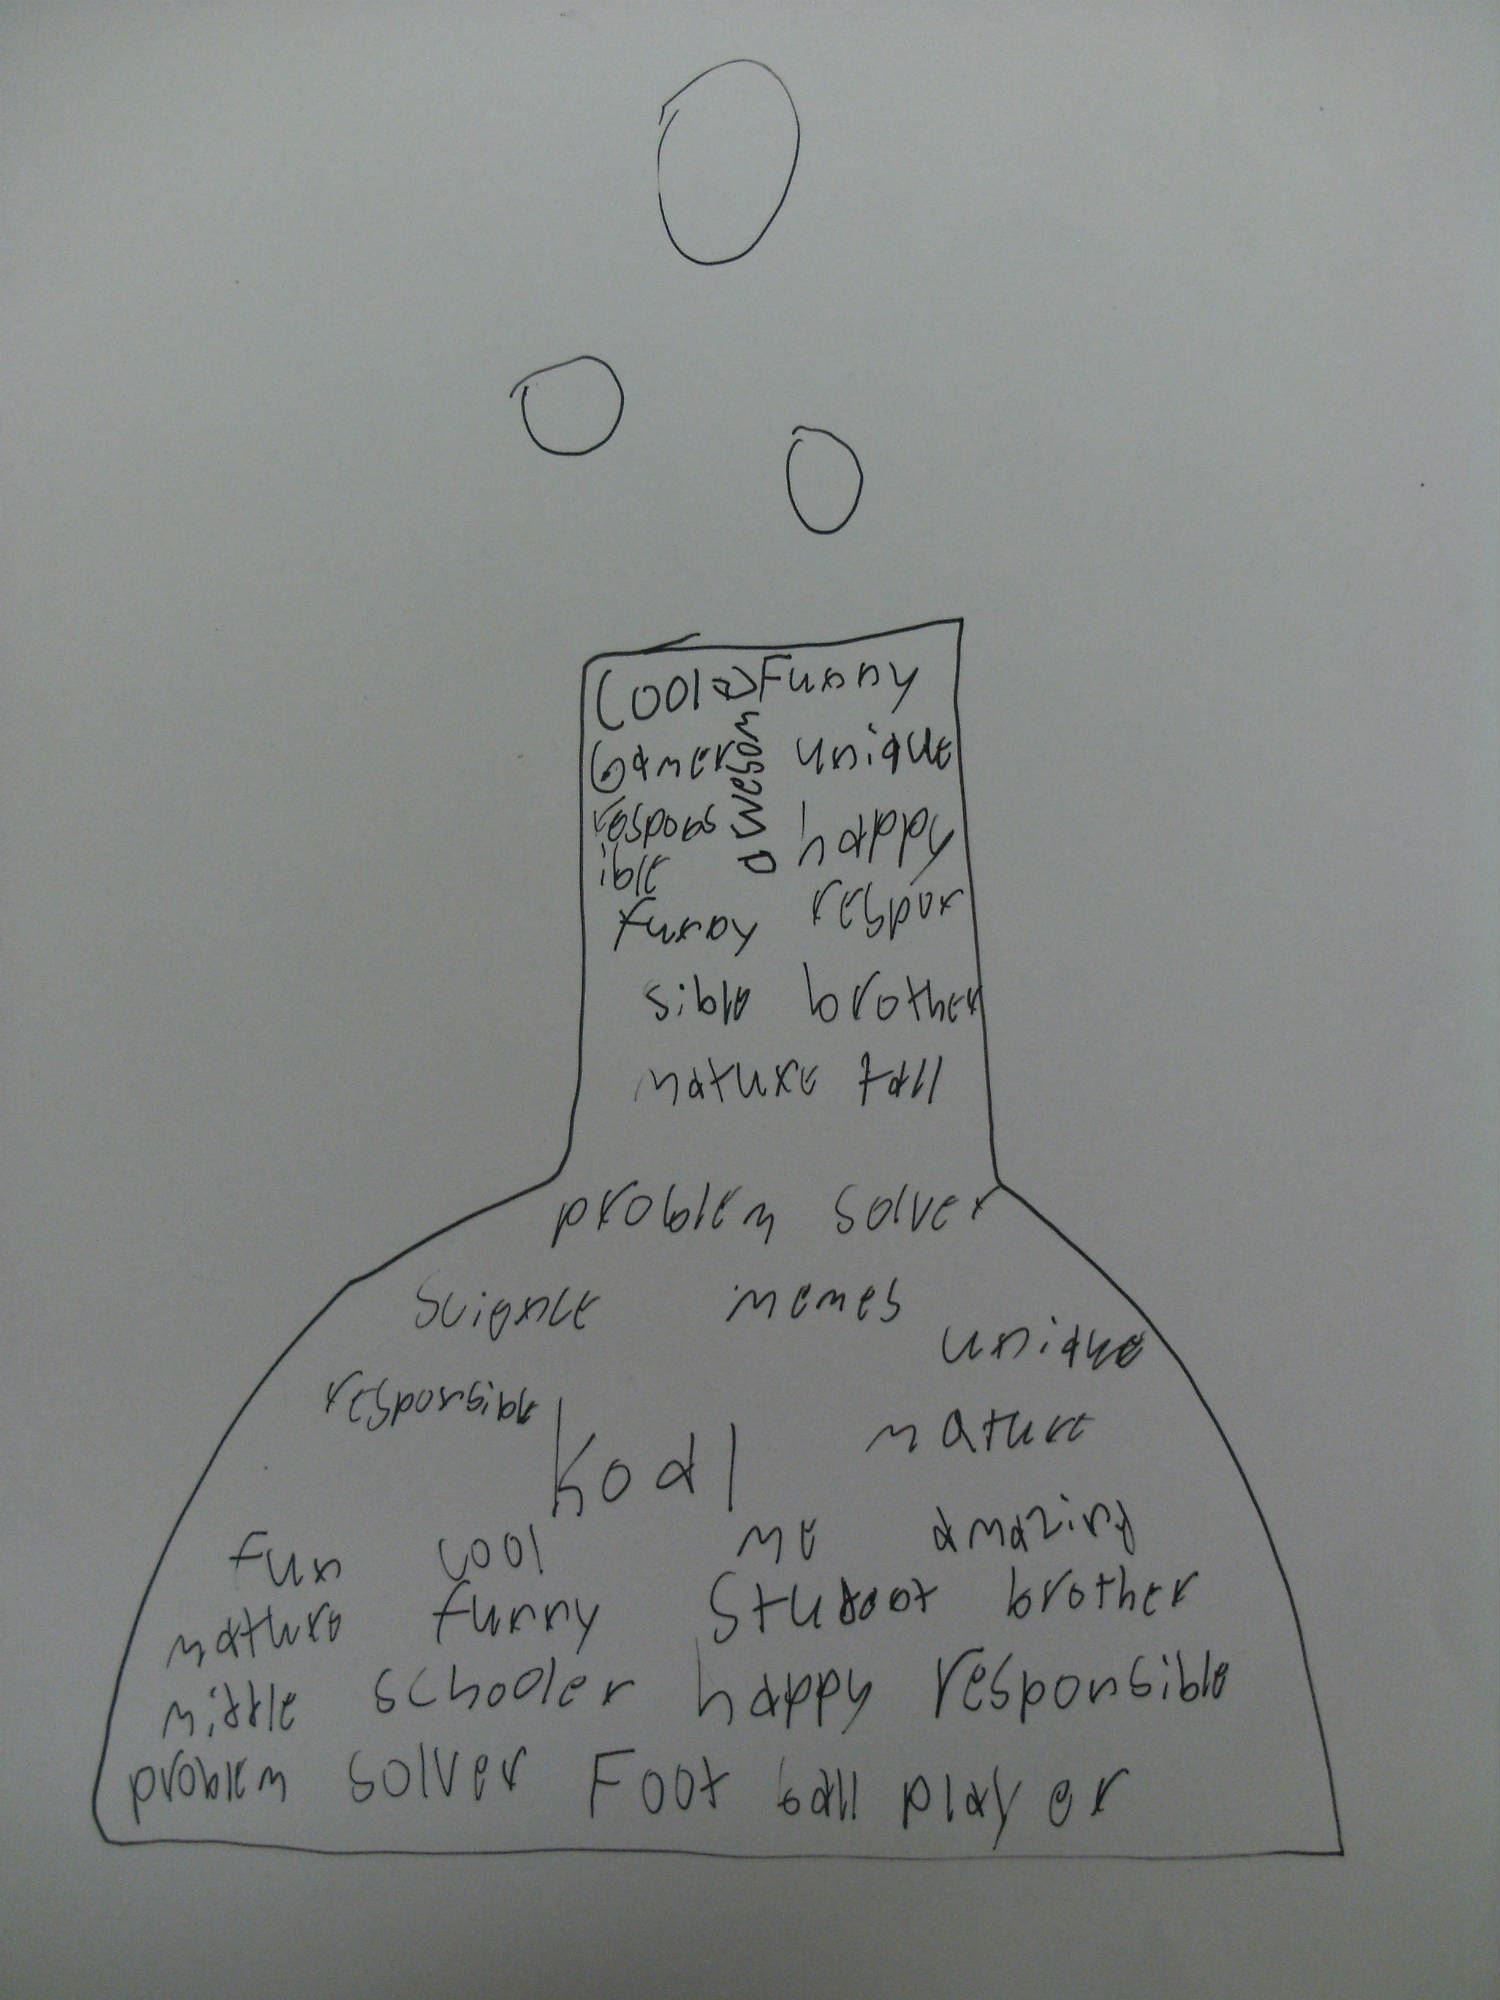 Cool Funny
Gamer awesom unique
respons happy
ible
funny respon
sible brother
mature tall
problem solver
science memes
unique
responsible
mature
kodl
fun cool me amazing
mature funny Student brother
middle schooler happy responsible
problem solver Foot ball player